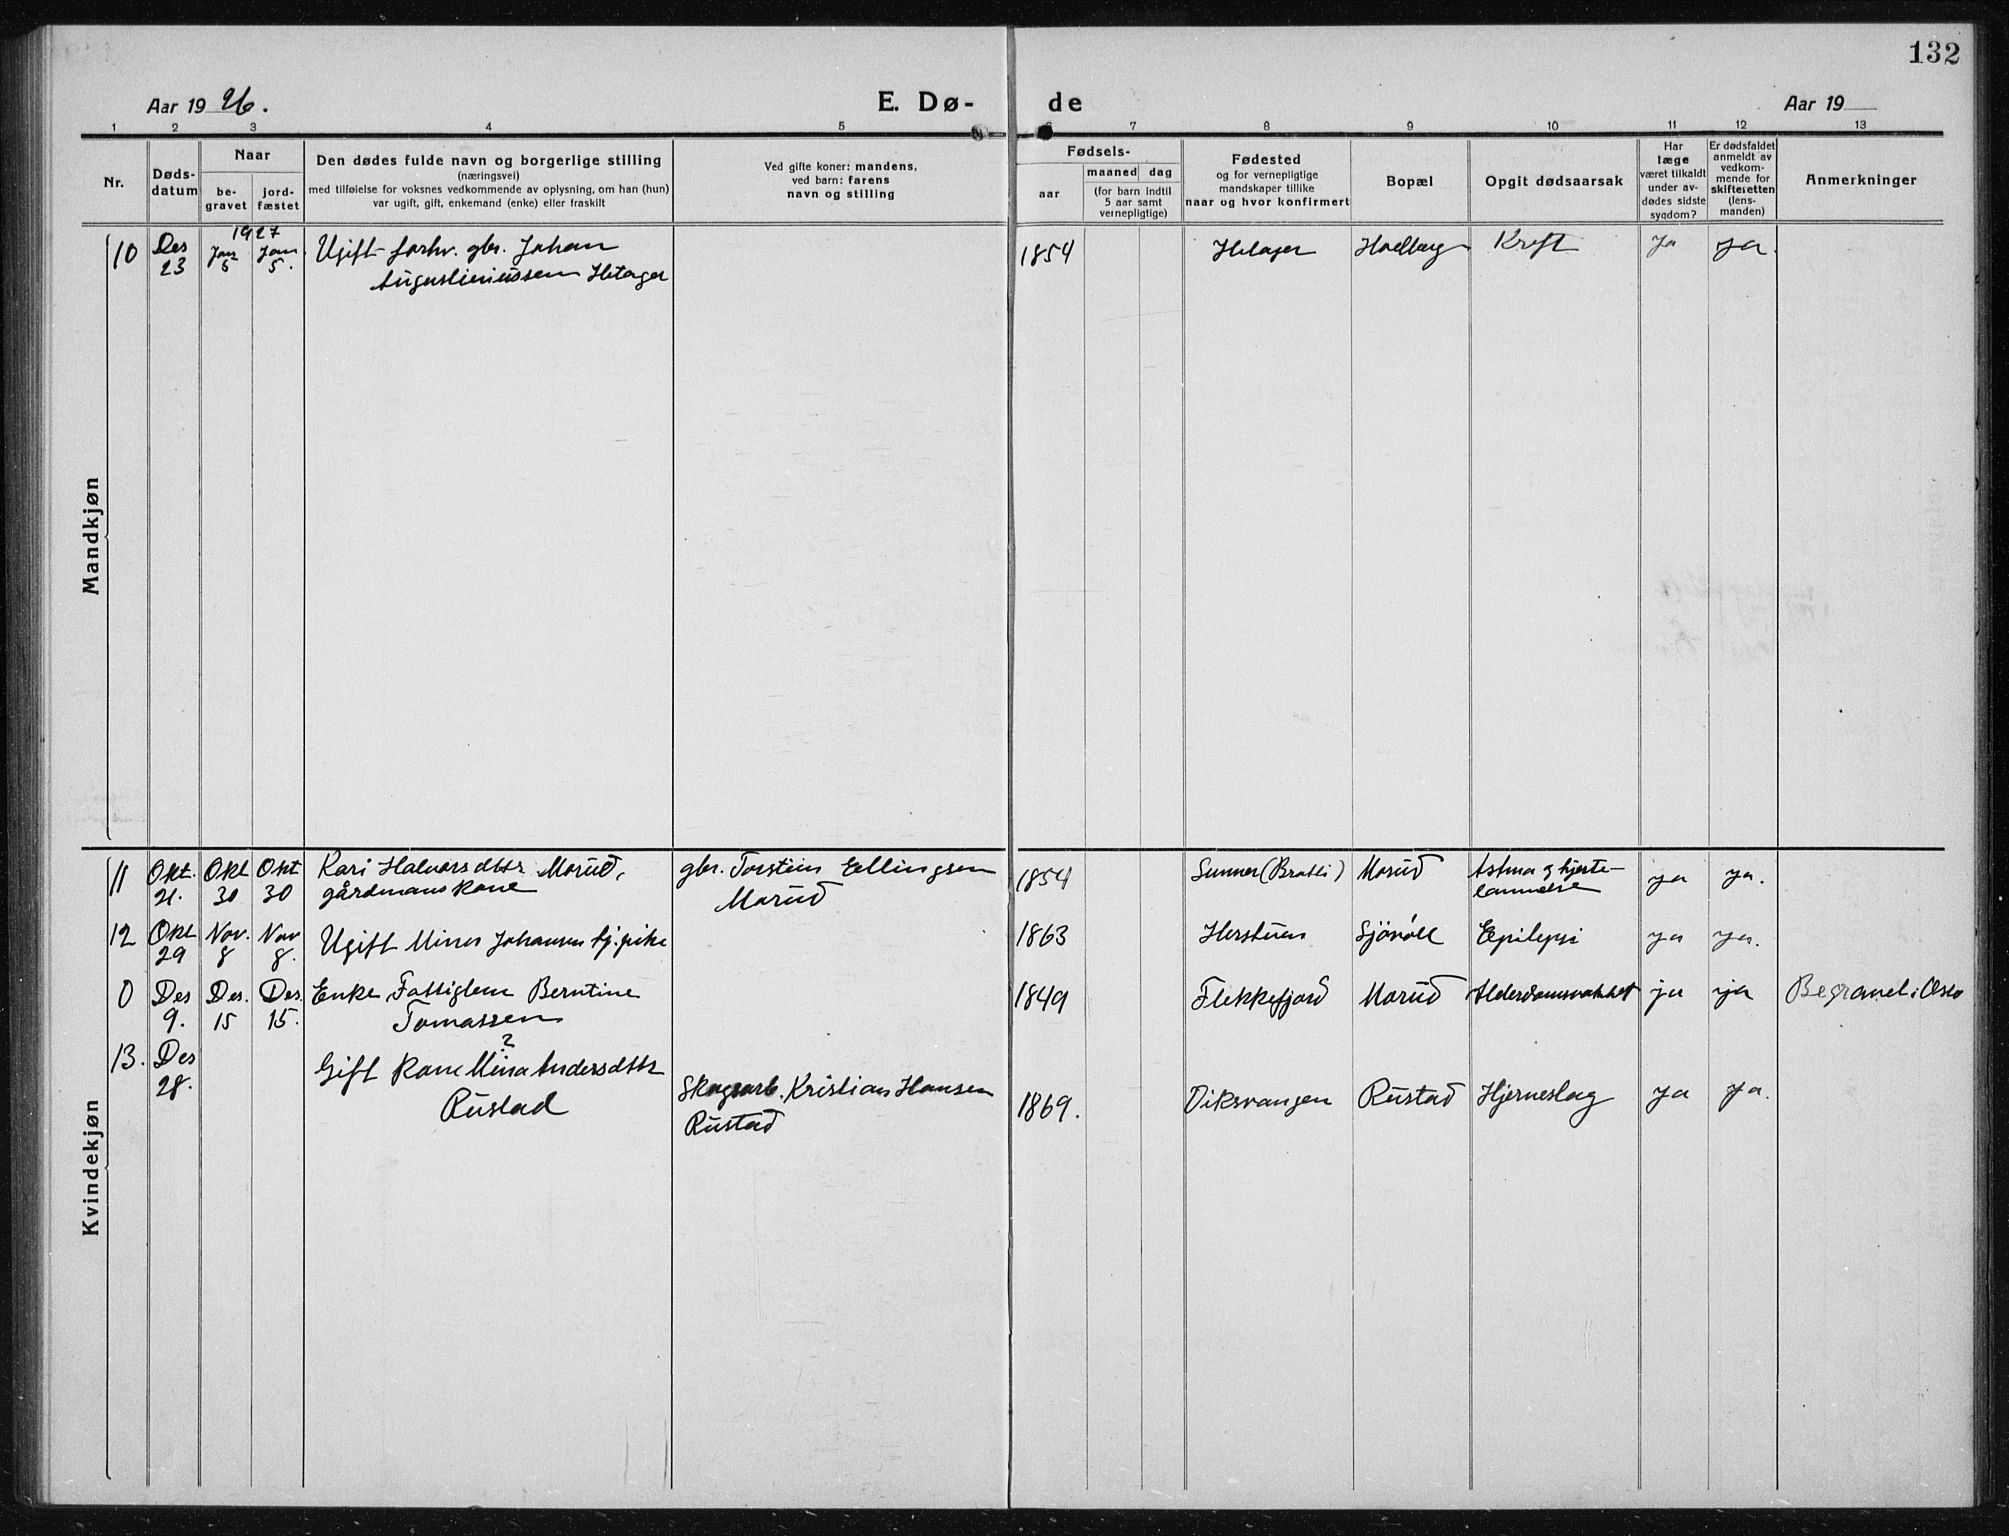 132
Aar 1926.
E. Dø- de
Aar 19
1 2 3 4 5 6 7 8 9 10 11 12 13
Nr.
Døds-
datum
Naar
be-
gravet
jord-
fæstet
Den dødes fulde navn og borgerlige stilling
(næringsvei)
med tilføielse for voksnes vedkommende av oplysning, om han (hun)
var ugift, gift, enkemand (enke) eller fraskilt
Ved gifte koner: mandens,
ved barn: farens
navn og stilling
Fødsels-
aar
maaned dag
(for barn indtil
5 aar samt
vernepligtige)
Fødested
og for vernepligtige
mandskaper tillike
naar og hvor konfirmert
Bopæl
Opgit dødsaarsak
Har
læge
været tilkaldt
under av-
dødes sidste
sygdom?
Er dødsfaldet
anmeldt av
vedkom-
mende for
skifteretten
(lens-
manden)
Anmerkninger
Mandkjøn
1927
10 Des Jan Jan. Ugift forhv. gbr. Johan 1854 Kreft ja ja.
23 5 5. Augustiniussen
Kvindekjøn
11 Okt. Okt Okt Kari Halvorsdttr Morud, gbr. Torstein Ellingsen 1854 Sunner (Bratli) Morud Astma og hjerte-
21. 30 30 gårdmanskone Morud lammelse ja ja.
12 Okt Nov. Nov Ugift Mina Johansen tj. pike 1863 Herstuen Sjøvoll Epilepsi ja ja.
29 8 8.
0 Des Des. Des. Enke, Fattiglem Berntine 1849 Flekkefjord Morud Alderdomsvakhet ja ja Begravet i Oslo
9. 15 15. Tomassen
?
13. Des Gift kone Mina Andersdttr
28. Rustad Skogsarb. Kristian Hansen 1869. Viksvangen Rustad Hjerneslag ja ja.
Rustad